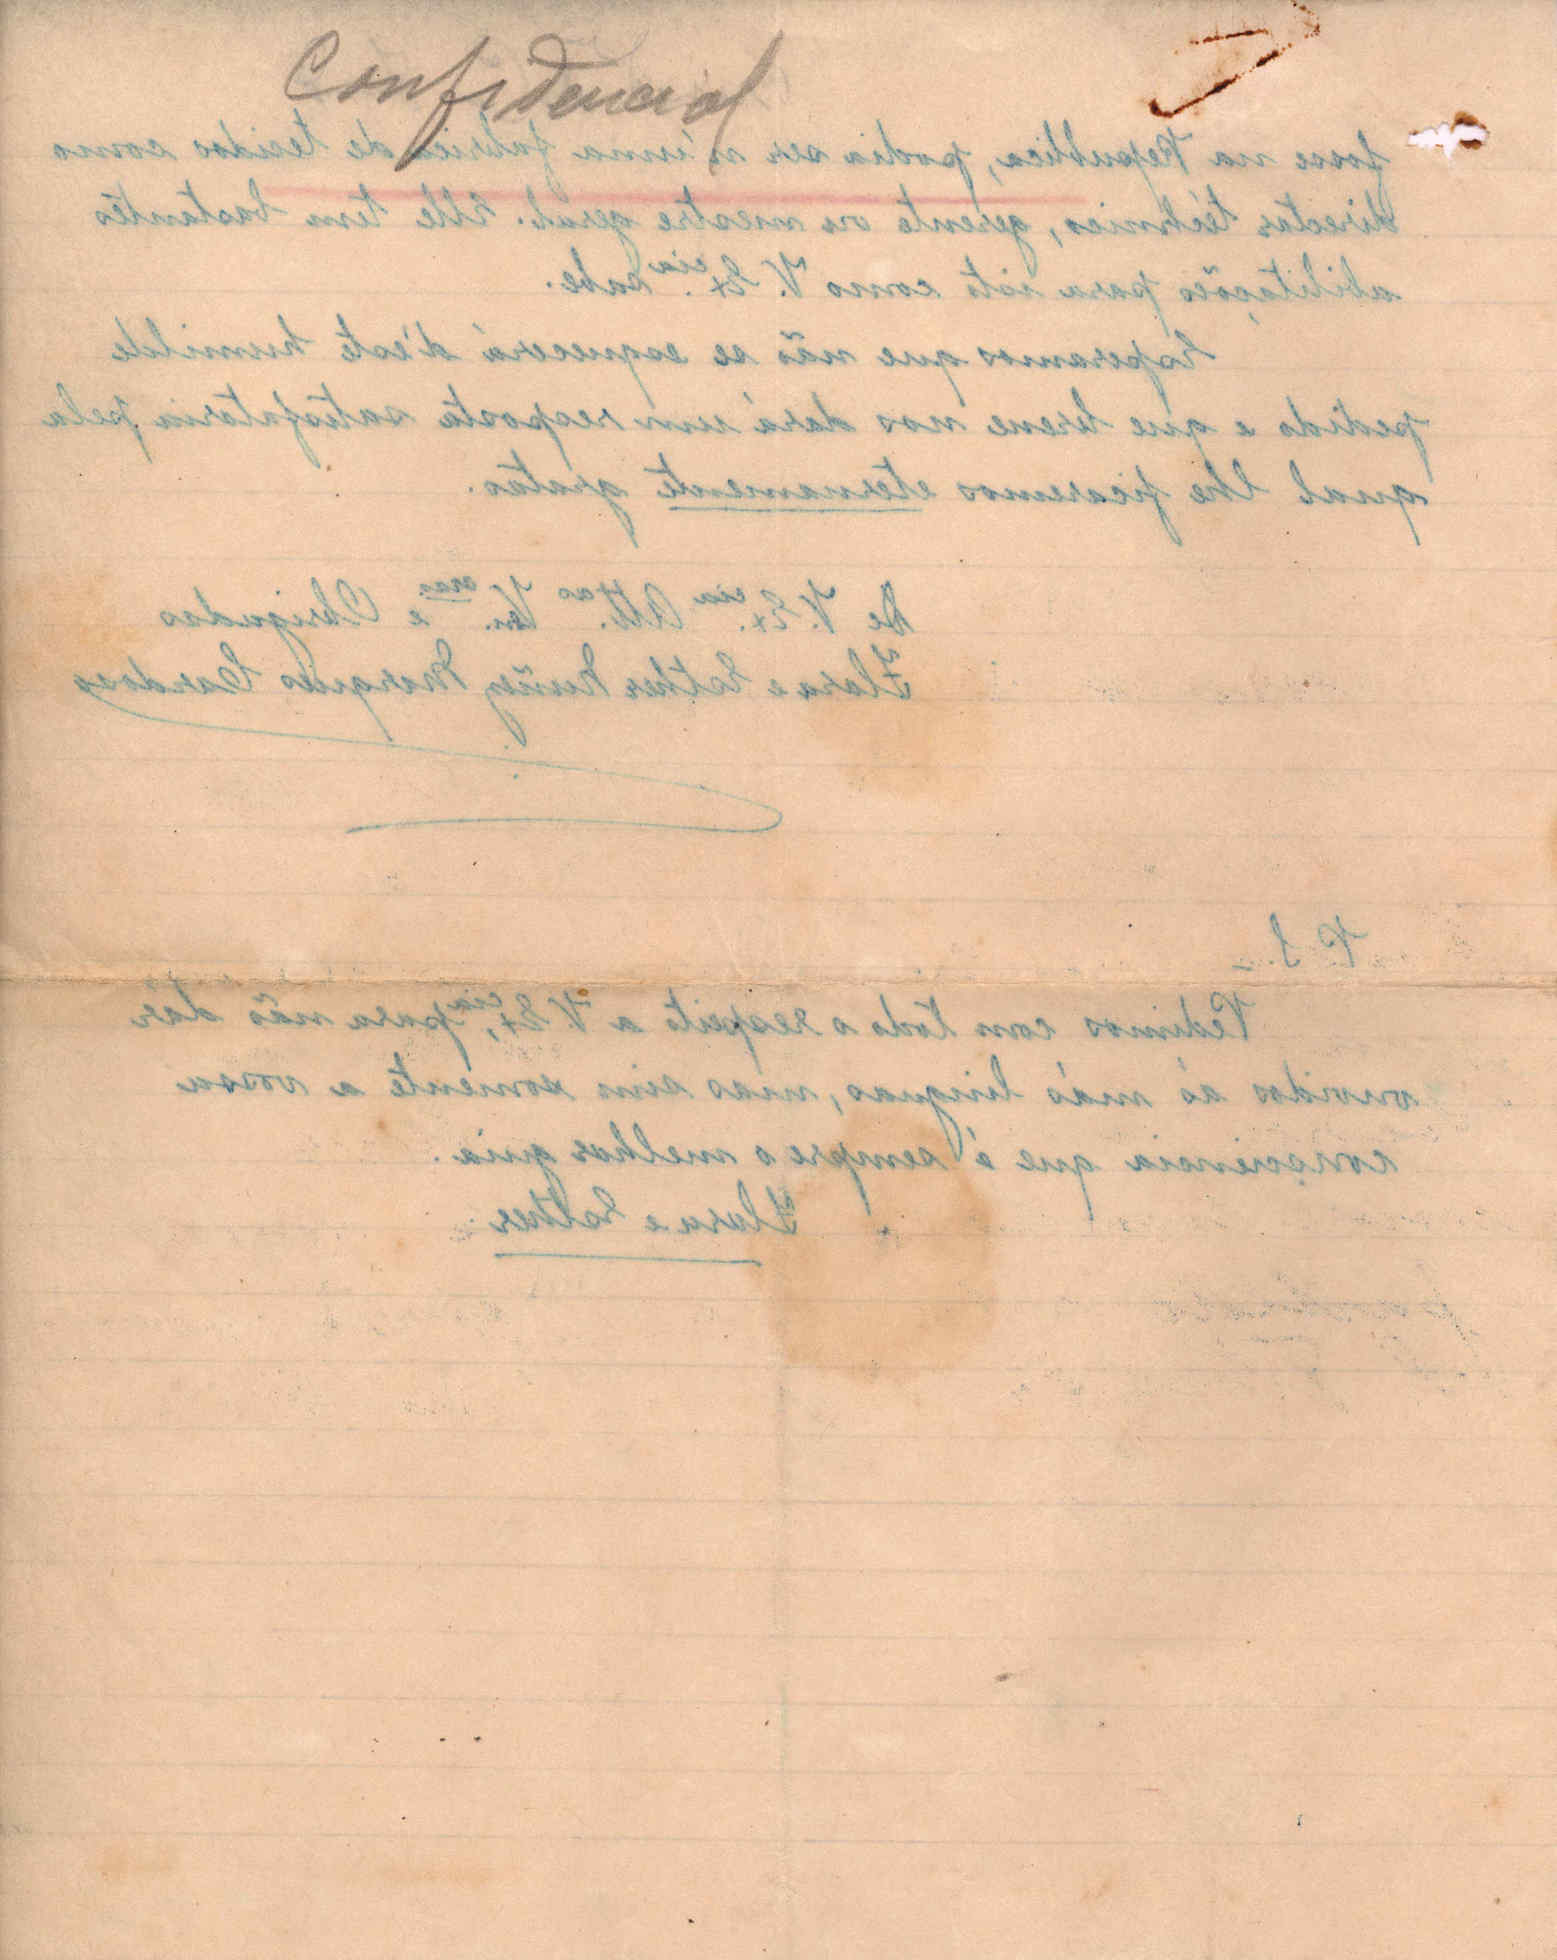 Confidencial
fosse na Republica, podia ser n'uma fabrica de tecidos como
director téchnico, gerente ou mestre geral. Elle tem bastantes
abilitações para isto como V. Ex.cia sabe.
Esperamos que não se esquecerá d'este humilde
pedido e que breve nos dará um resposta satisfatoria, pela
qual lhe ficaremos eternamente gratas.
De V. Ex.cia Att.as Ven.oras e Obrigadas
Flora e Esther Nuñez Marques Cardoso
P. S.
Pedimos com todo o respeito a V. Ex.cia, para não dár
ouvidos ás más linguas, mas sim somente a vossa
consciencia que é sempre o melhor guia.
Flora e Esther